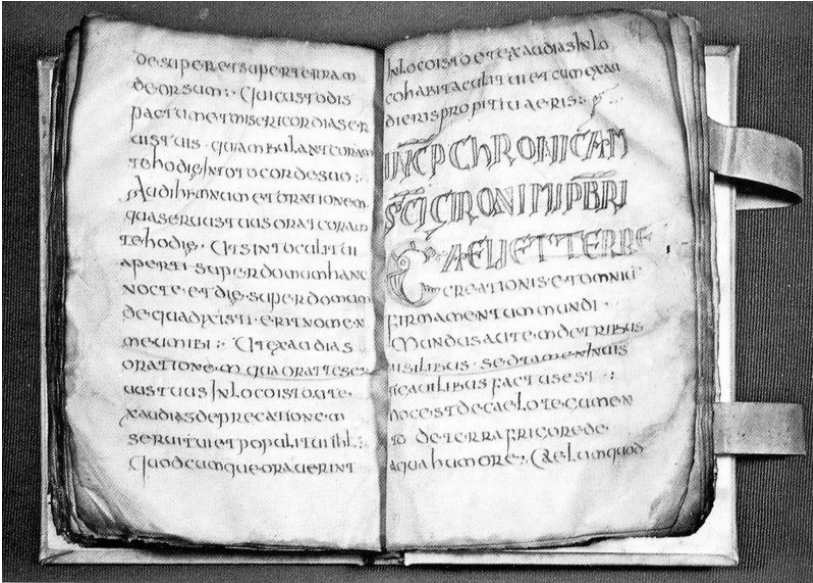 desuperetsuperterram
deorsum:· Quicustodis
pactumetmisericordiaser
uistuis· quiambulantcoram
tehodieIntotocordesuo:·
Audihymnumetorationem
quaseruustuusoratcoram
tehodie· Utsintoculitui
aperti·superdomumhanc
nocte·etdie·superdomum
dequadixisti·eritnomen
meumibi:· Utexaudias
oratione·m quaoratteser
uustuusInlocoistoute·
xaudiasdeprecatione·m
seruituietpopulituiihl·:
Quodcumque·orauerint
InlocoistoetexaudiasInlo
cohabitaculituietcumexau
dierispropitiuseris:·
INCP CHRONICAM
SCI GIRONIMI PBRI
CAELIETTERRE
creationis·etomniu
firmamentummundi·
Mundusaute·mdetribus
uisilibus·sedtamenInuis
ficauilibusfactusest·:
hocestdecaelotecumen
deterrafrigore·de
aquahumore·, Caelumquod